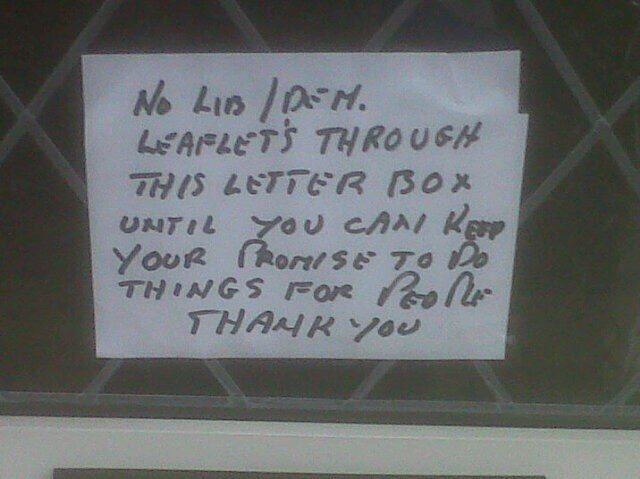 NO LIB/DEM.
LEAFLET'S THROUGH
THIS LETTER BOX
UNTIL YOU CAN KEEP
YOUR PROMISE TO DO
THINGS FOR PEOPLE
THANK YOU